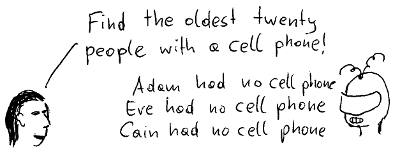 Find the oldest twenty
people with a cell phone!
Adam had no cell phone
Eve had no cell phone
Cain had no cell phone